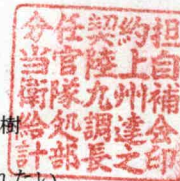 分任契約担
当官陸上自
衛隊九州補
樹
給処調達会
計部長之印